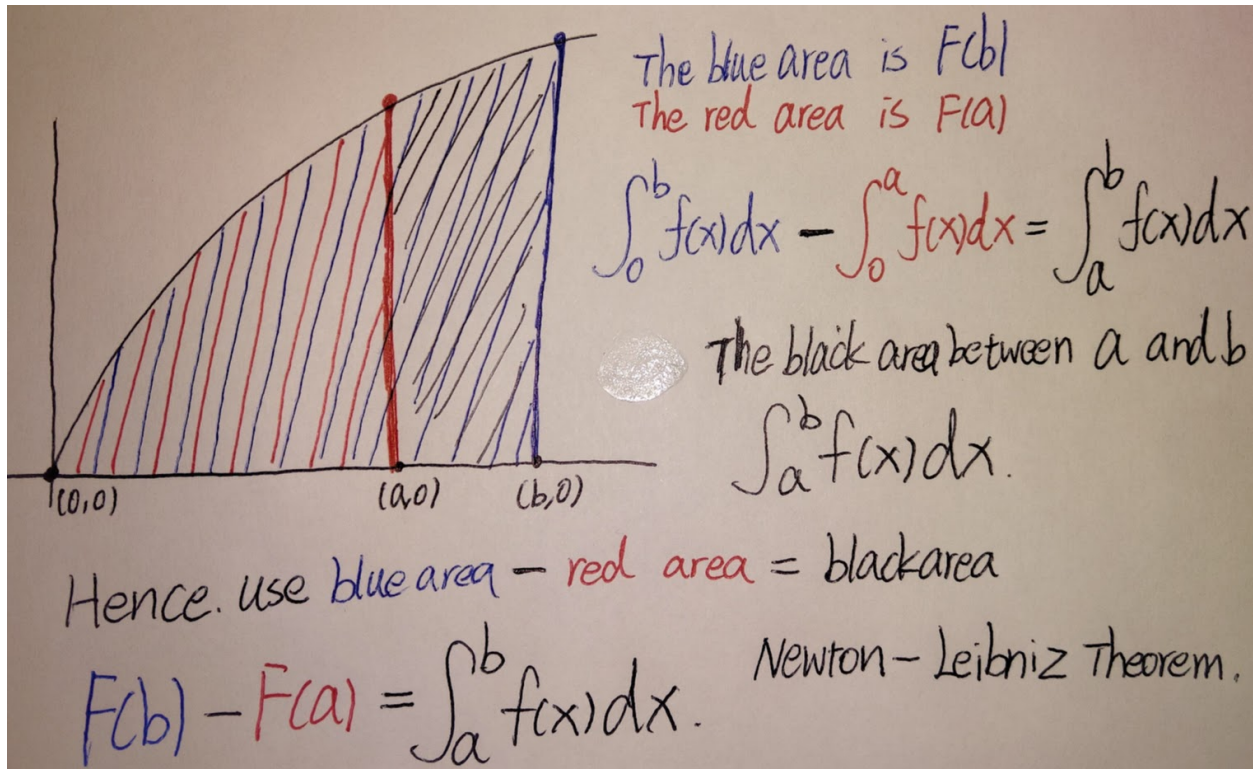 The blue area is F(b)
The red area is F(a)
∫₀ᵇ f(x)dx − ∫₀ᵃ f(x)dx = ∫ₐᵇ f(x)dx
The black area between a and b
∫ₐᵇ f(x)dx.
(0,0)
(a,0)
(b,0)
Hence. use blue area − red area = black area
F(b) − F(a) = ∫ₐᵇ f(x)dx.
Newton − Leibniz Theorem.